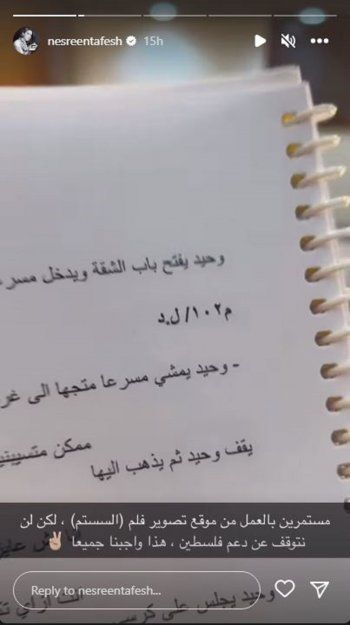 nesreentafesh 15h
وحيد يفتح باب الشقة ويدخل مسرعا
م١٠٢/ ل.د
- وحيد يمشي مسرعا متجها الى غر
ممكن متسيبني
يقف وحيد ثم يذهب اليها
مستمرين بالعمل من موقع تصوير فلم (السستم) ، لكن لن
نتوقف عن دعم فلسطين ، هذا واجبنا جميعاً ✌🏼
انت ازاي
وحيد يجلس على كرسي
Reply to nesreentafesh...